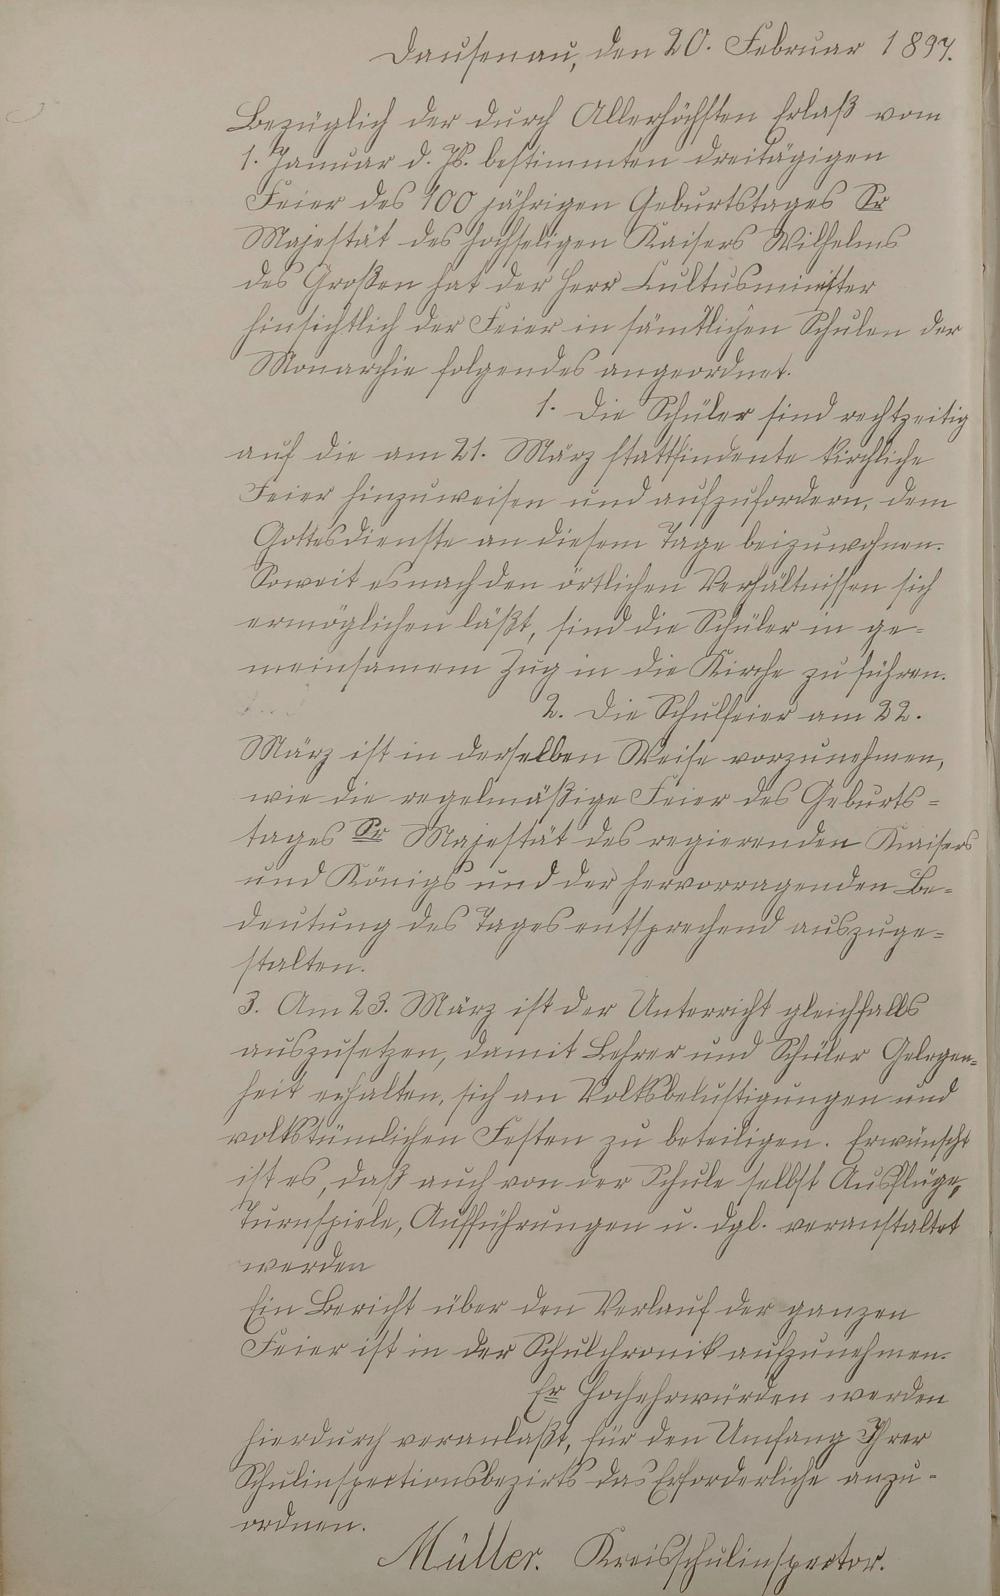 Dausenau, den 20. Februar 1897.
Bezüglich der durch Allerhöchsten Erlaß vom
1. Januar d. Js. bestimmten dreitägigen
Feier des 100 jährigen Geburtstages Sr
Majestät des hochseligen Kaisers Wilhelms
des Großen hat der Herr Cultusminister
hinsichtlich der Feier in sämtlichen Schulen der
Monarchie folgendes angeordnet.
1. Die Schüler sind rechtzeitig
auf die am 21. März stattfindente kirchliche
Feier hinzuweisen und aufzufordern, dem
Gottesdienste an diesem Tage beizuwohnen.
Soweit es nach den örtlichen Verhältnissen sich
ermöglichen läßt, sind die Schüler in ge-
meinsamem Zug in die Kirche zu führen.
2. Die Schulfeier am 22.
März ist in derselben Weise vorzunehmen,
wie die regelmäßige Feier des Geburts-
tages Sr Majestät des regierenden Kaisers
und Königs und der hervorragenden Be-
deutung des Tages entsprechend auszuge-
stalten.
3. Am 23. März ist der Unterricht gleichfalls
auszusetzen, damit Lehrer und Schüler Gelegen-
heit erhalten, sich an Volksbelustigungen und
volkstümlichen Festen zu beteiligen. Erwünscht
ist es, daß auch von der Schule selbst Ausflüge,
Turnspiele, Aufführungen u. dgl. veranstaltet
werden
Ein Bericht über den Verlauf der ganzen
Feier ist in der Schulchronik aufzunehmen.
Er Hochehrwürden werden
hierdurch veranlaßt, für den Umfang Ihrer
Schulinspectionsbezirks das Erforderliche anzu-
ordnen.
Müller. Kreisschulinspector.